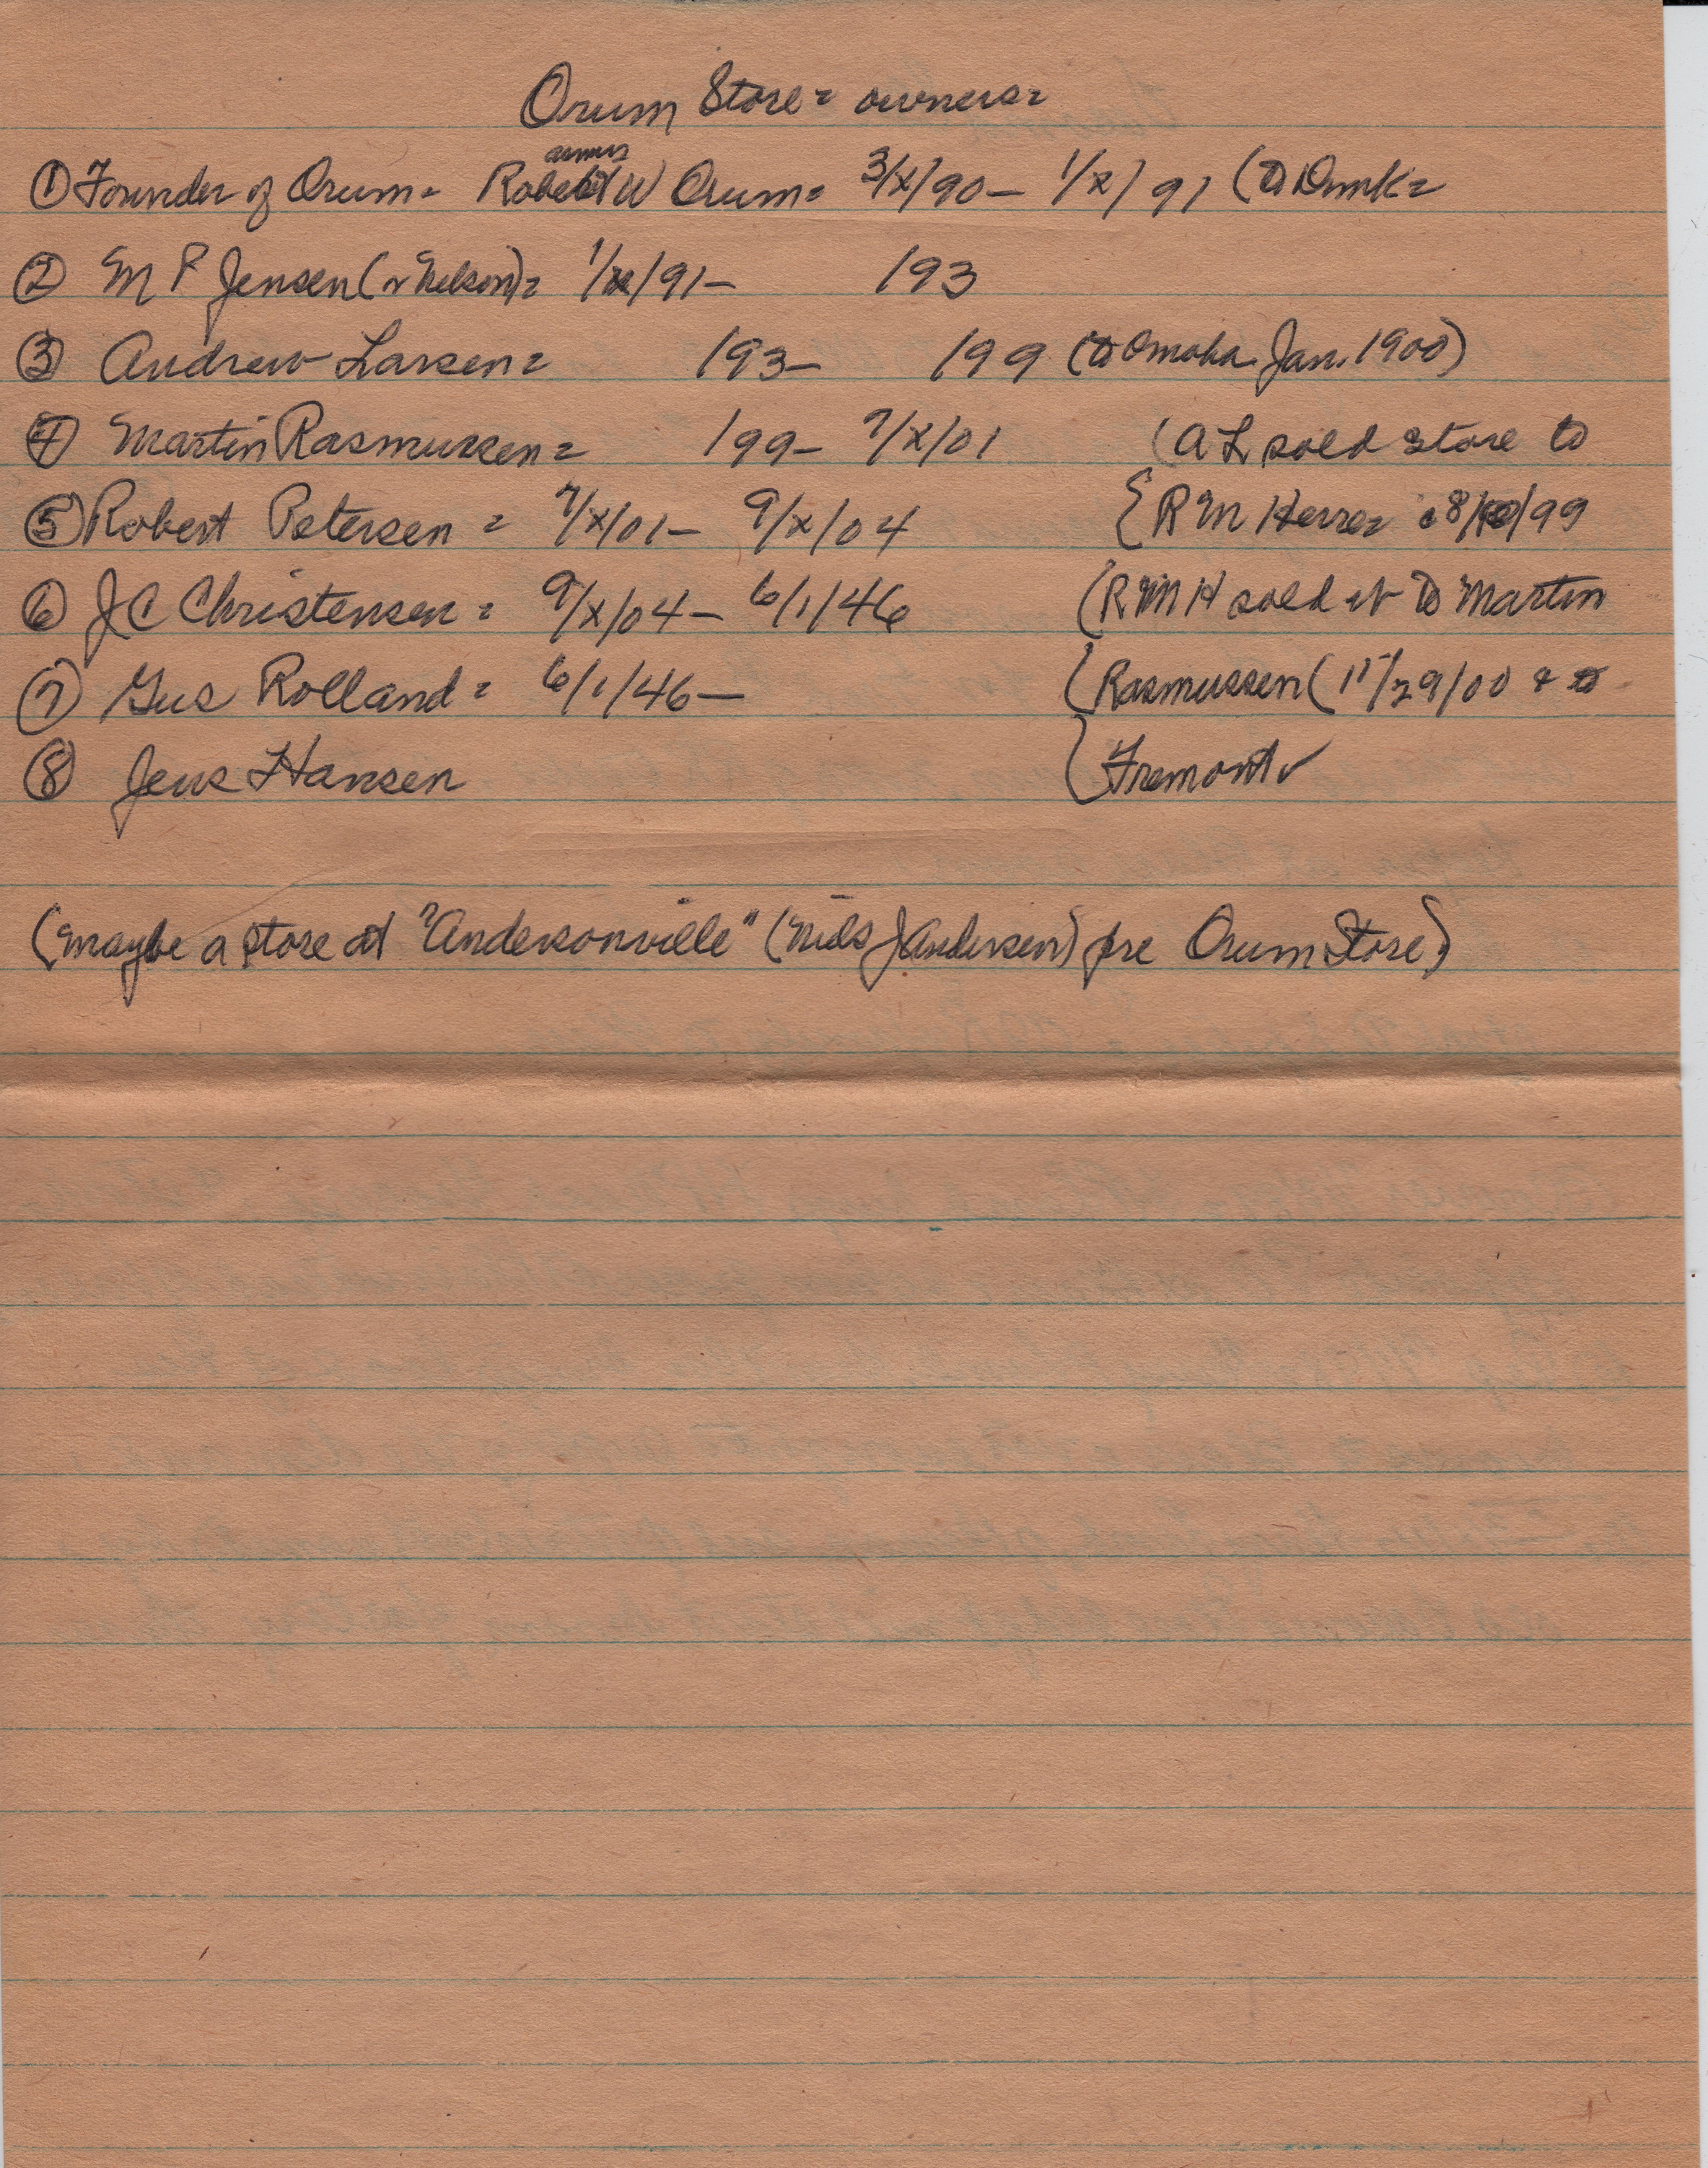 Orum Store = owners =
asmus
① Founder of Orum = Robert W Orum = 3/x/90 – 1/x/91 (to Dmk =
② M P Jensen (v Nelson) = 1/x/91 – /93
③ Andrew Larsen = /93 – /99 (to Omaha Jan. 1900)
④ Martin Rasmussen = /99 – 7/x/01 (A L sold store to
⑤ Robert Petersen = 7/x/01 – 9/x/04 { R M Herre = 8/ /99
⑥ J C Christensen = 9/x/04 – 6/1/46 (R M H sold it to Martin
⑦ Gus Rolland = 6/1/46 – (Rasmussen (11/29/00 & to
⑧ Jens Hansen (Fremont ✓
(maybe a store at "Andersonville" (Niels J Andersen) pre Orum Store)